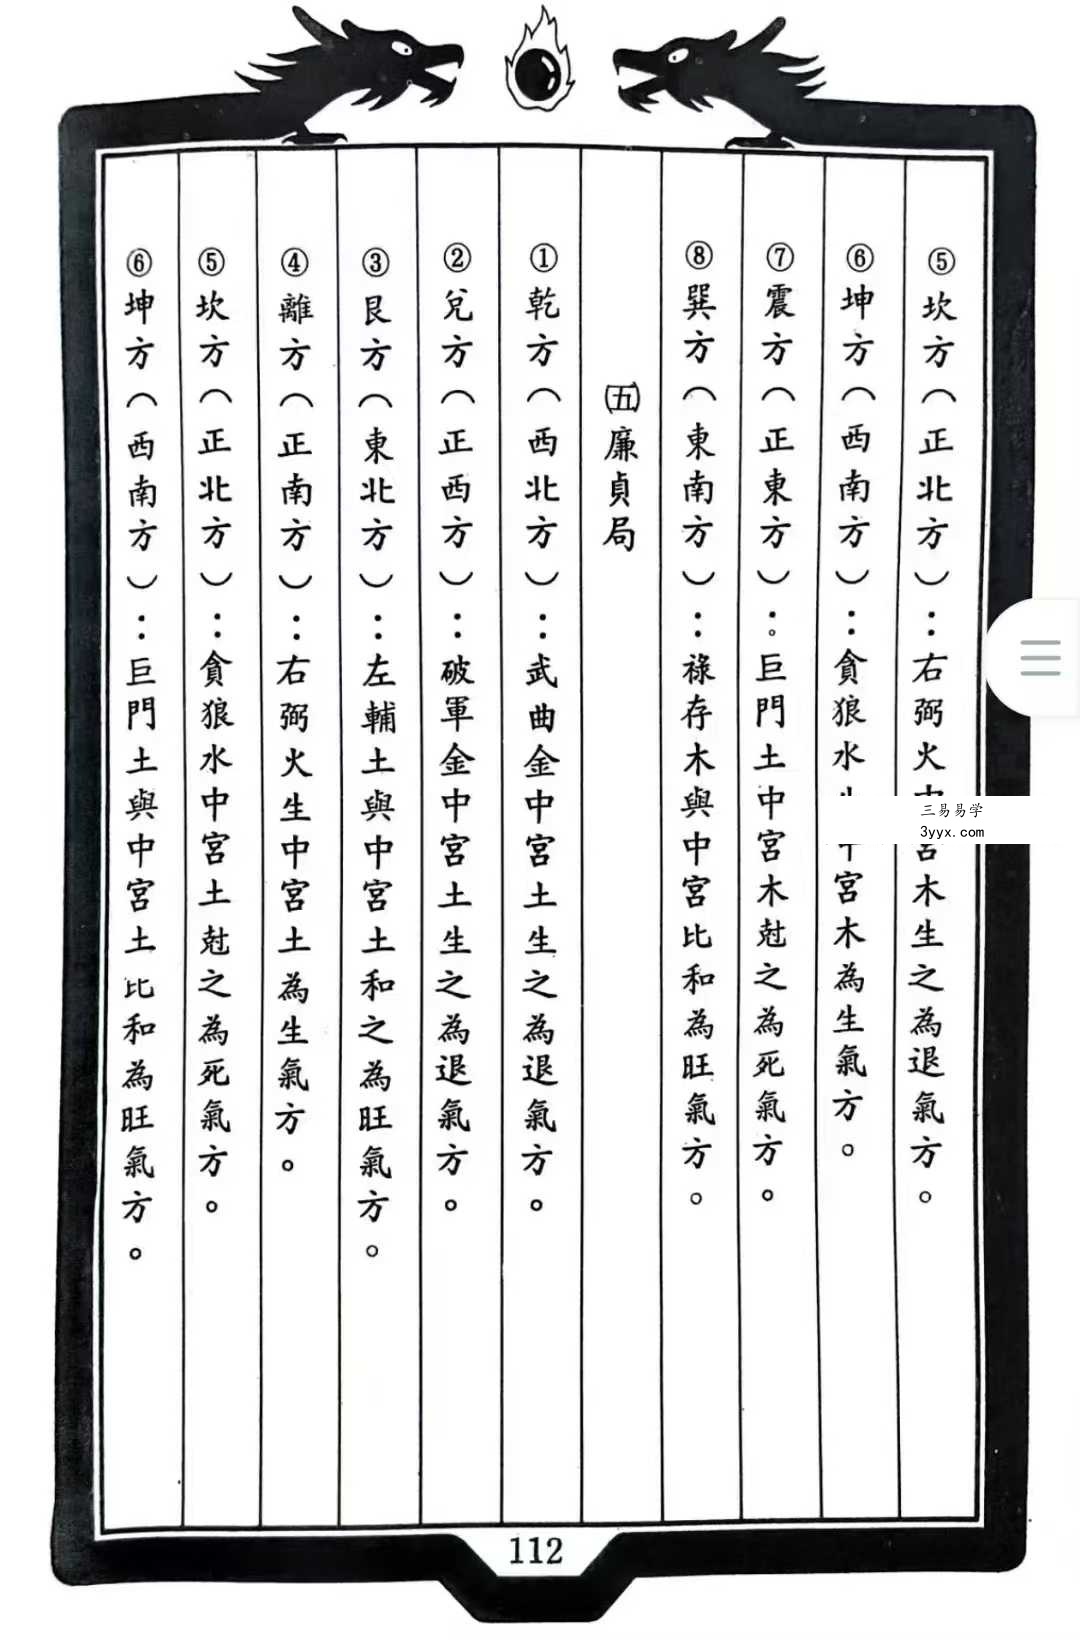 ⑤坎方（正北方）：右弼火中宮木生之為退氣方。
⑥坤方（西南方）：貪狼水生中宮木為生氣方。
⑦震方（正東方）：。巨門土中宮木尅之為死氣方。
⑧巽方（東南方）：祿存木與中宮比和為旺氣方。
㈤廉貞局
①乾方（西北方）：武曲金中宮土生之為退氣方。
②兌方（正西方）：破軍金中宮土生之為退氣方。
③艮方（東北方）：左輔土與中宮土和之為旺氣方。
④離方（正南方）：右弼火生中宮土為生氣方。
⑤坎方（正北方）：貪狼水中宮土尅之為死氣方。
⑥坤方（西南方）：巨門土與中宮土比和為旺氣方。
三易易学
3yyx.com
112